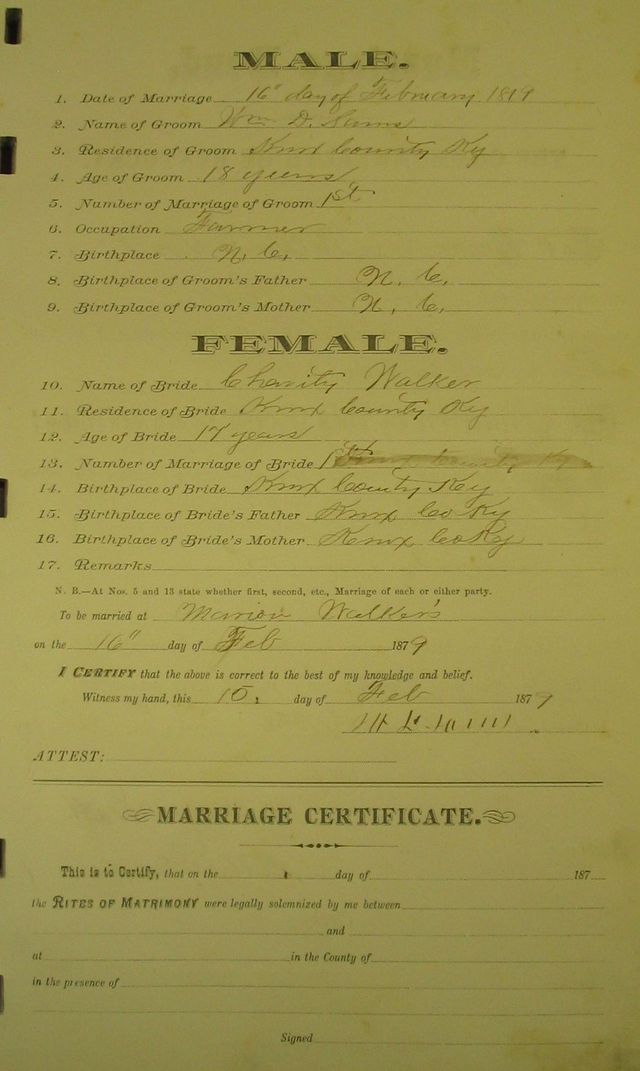 MALE.
1. Date of Marriage 16" day of February 1879
2. Name of Groom Wm D. Sams
3. Residence of Groom Knox County Ky
4. Age of Groom 18 years
5. Number of Marriage of Groom 1st
6. Occupation Farmer
7. Birthplace N. C.
8. Birthplace of Groom's Father N. C.
9. Birthplace of Groom's Mother N. C.
FEMALE.
10. Name of Bride Charity Walker
11. Residence of Bride Knox County Ky
12. Age of Bride 17 years
13. Number of Marriage of Bride 1st
14. Birthplace of Bride Knox County Ky
15. Birthplace of Bride's Father Knox Co Ky
16. Birthplace of Bride's Mother Knox Co Ky
17. Remarks
N. B.—At Nos. 5 and 13 state whether first, second, etc., Marriage of each or either party.
To be married at Marion Walker's
on the 16" day of Feb 1879
I CERTIFY that the above is correct to the best of my knowledge and belief.
Witness my hand, this 10. day of Feb 1879
ATTEST:
MARRIAGE CERTIFICATE.
This is to Certify, that on the day of 187
the RITES OF MATRIMONY were legally solemnized by me between
and
at in the County of
in the presence of
Signed